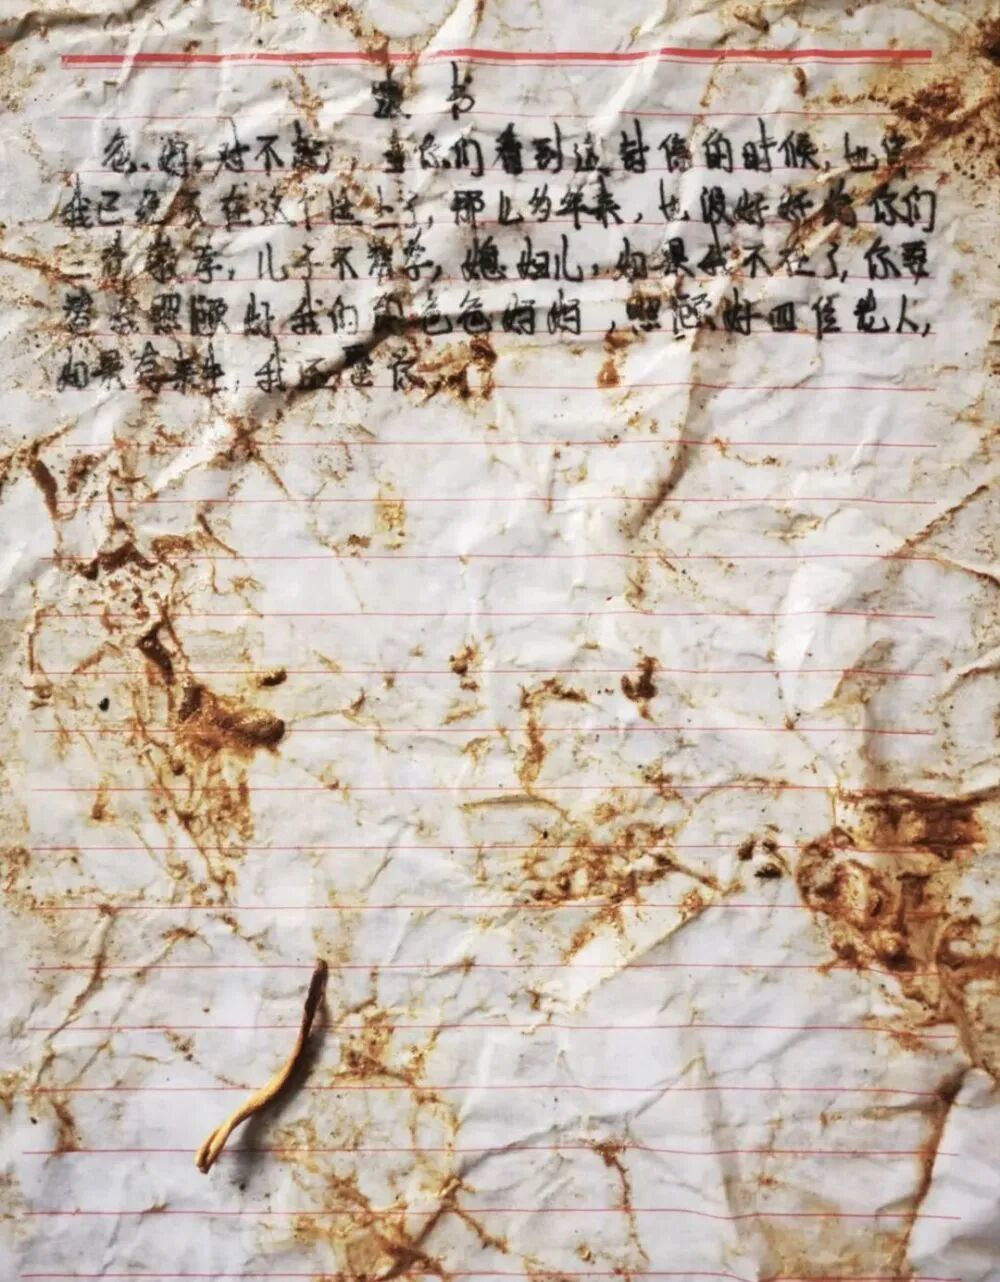 书
爸、妈，对不起，当你们看到这封信的时候，也许
我已经不在这个世上了，那么多年来，也没好好为你们
二老敬孝，儿子不敬孝，媳妇儿，如果我不在了，你要
替我照顾好我们的爸爸妈妈，照顾好四位老人，
如果有来生，我还还你